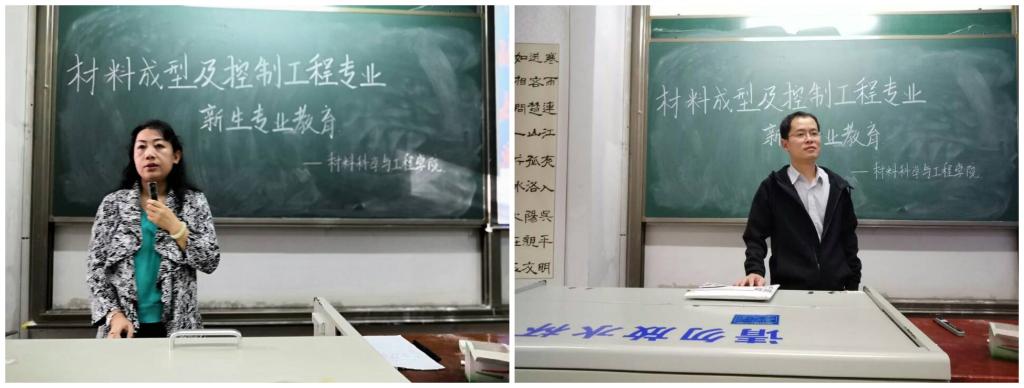 材料成型及控制工程专业
新生专业教育
——材料科学与工程学院
寒雨連江夜入吳平明
送客楚山孤洛陽親友
如相問一片冰心在玉
材料成型及控制工程专业
新 业教育
——材料科学与工程学院
请勿放水杯